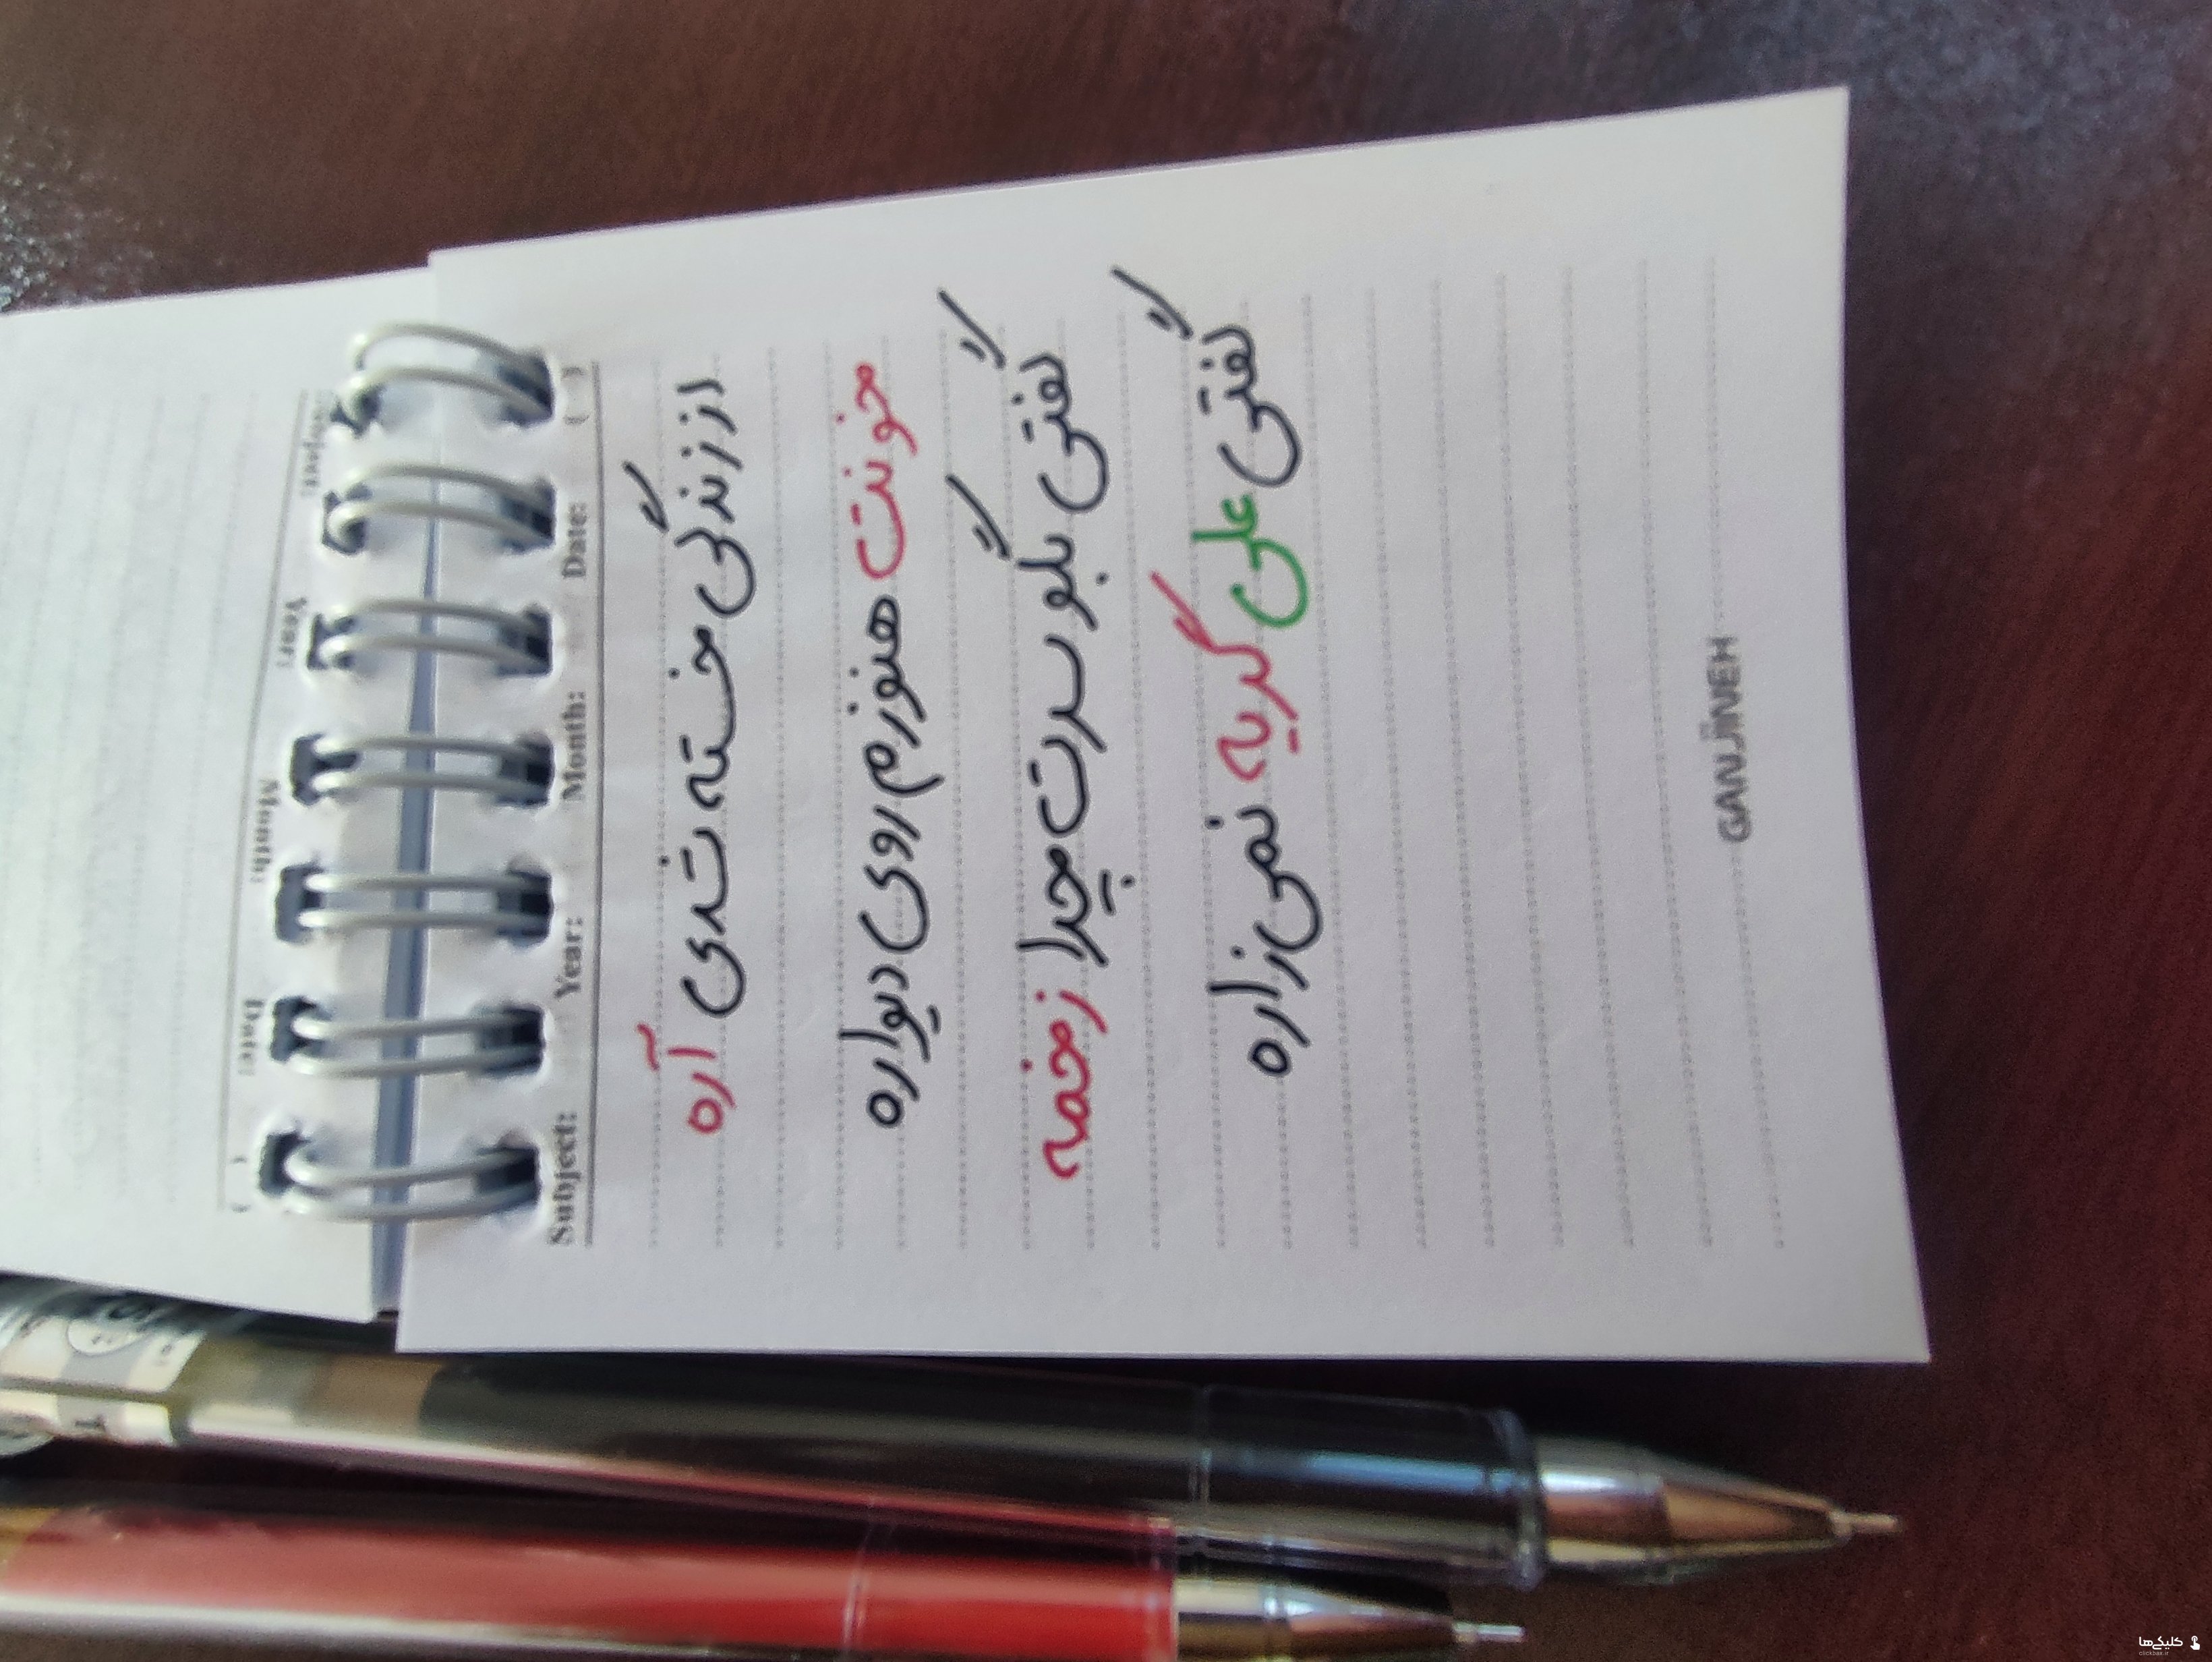 Subject: Year: Month: Date: ( )
از زندگی خسته شدی آره
خونت هنوزم روی دیواره
گفتی بگو سرت چرا زخمه
گفتی علی گریه نمی‌زاره
GANJINEH
Year:
Month:
Date:
( )
کلیکی‌ها